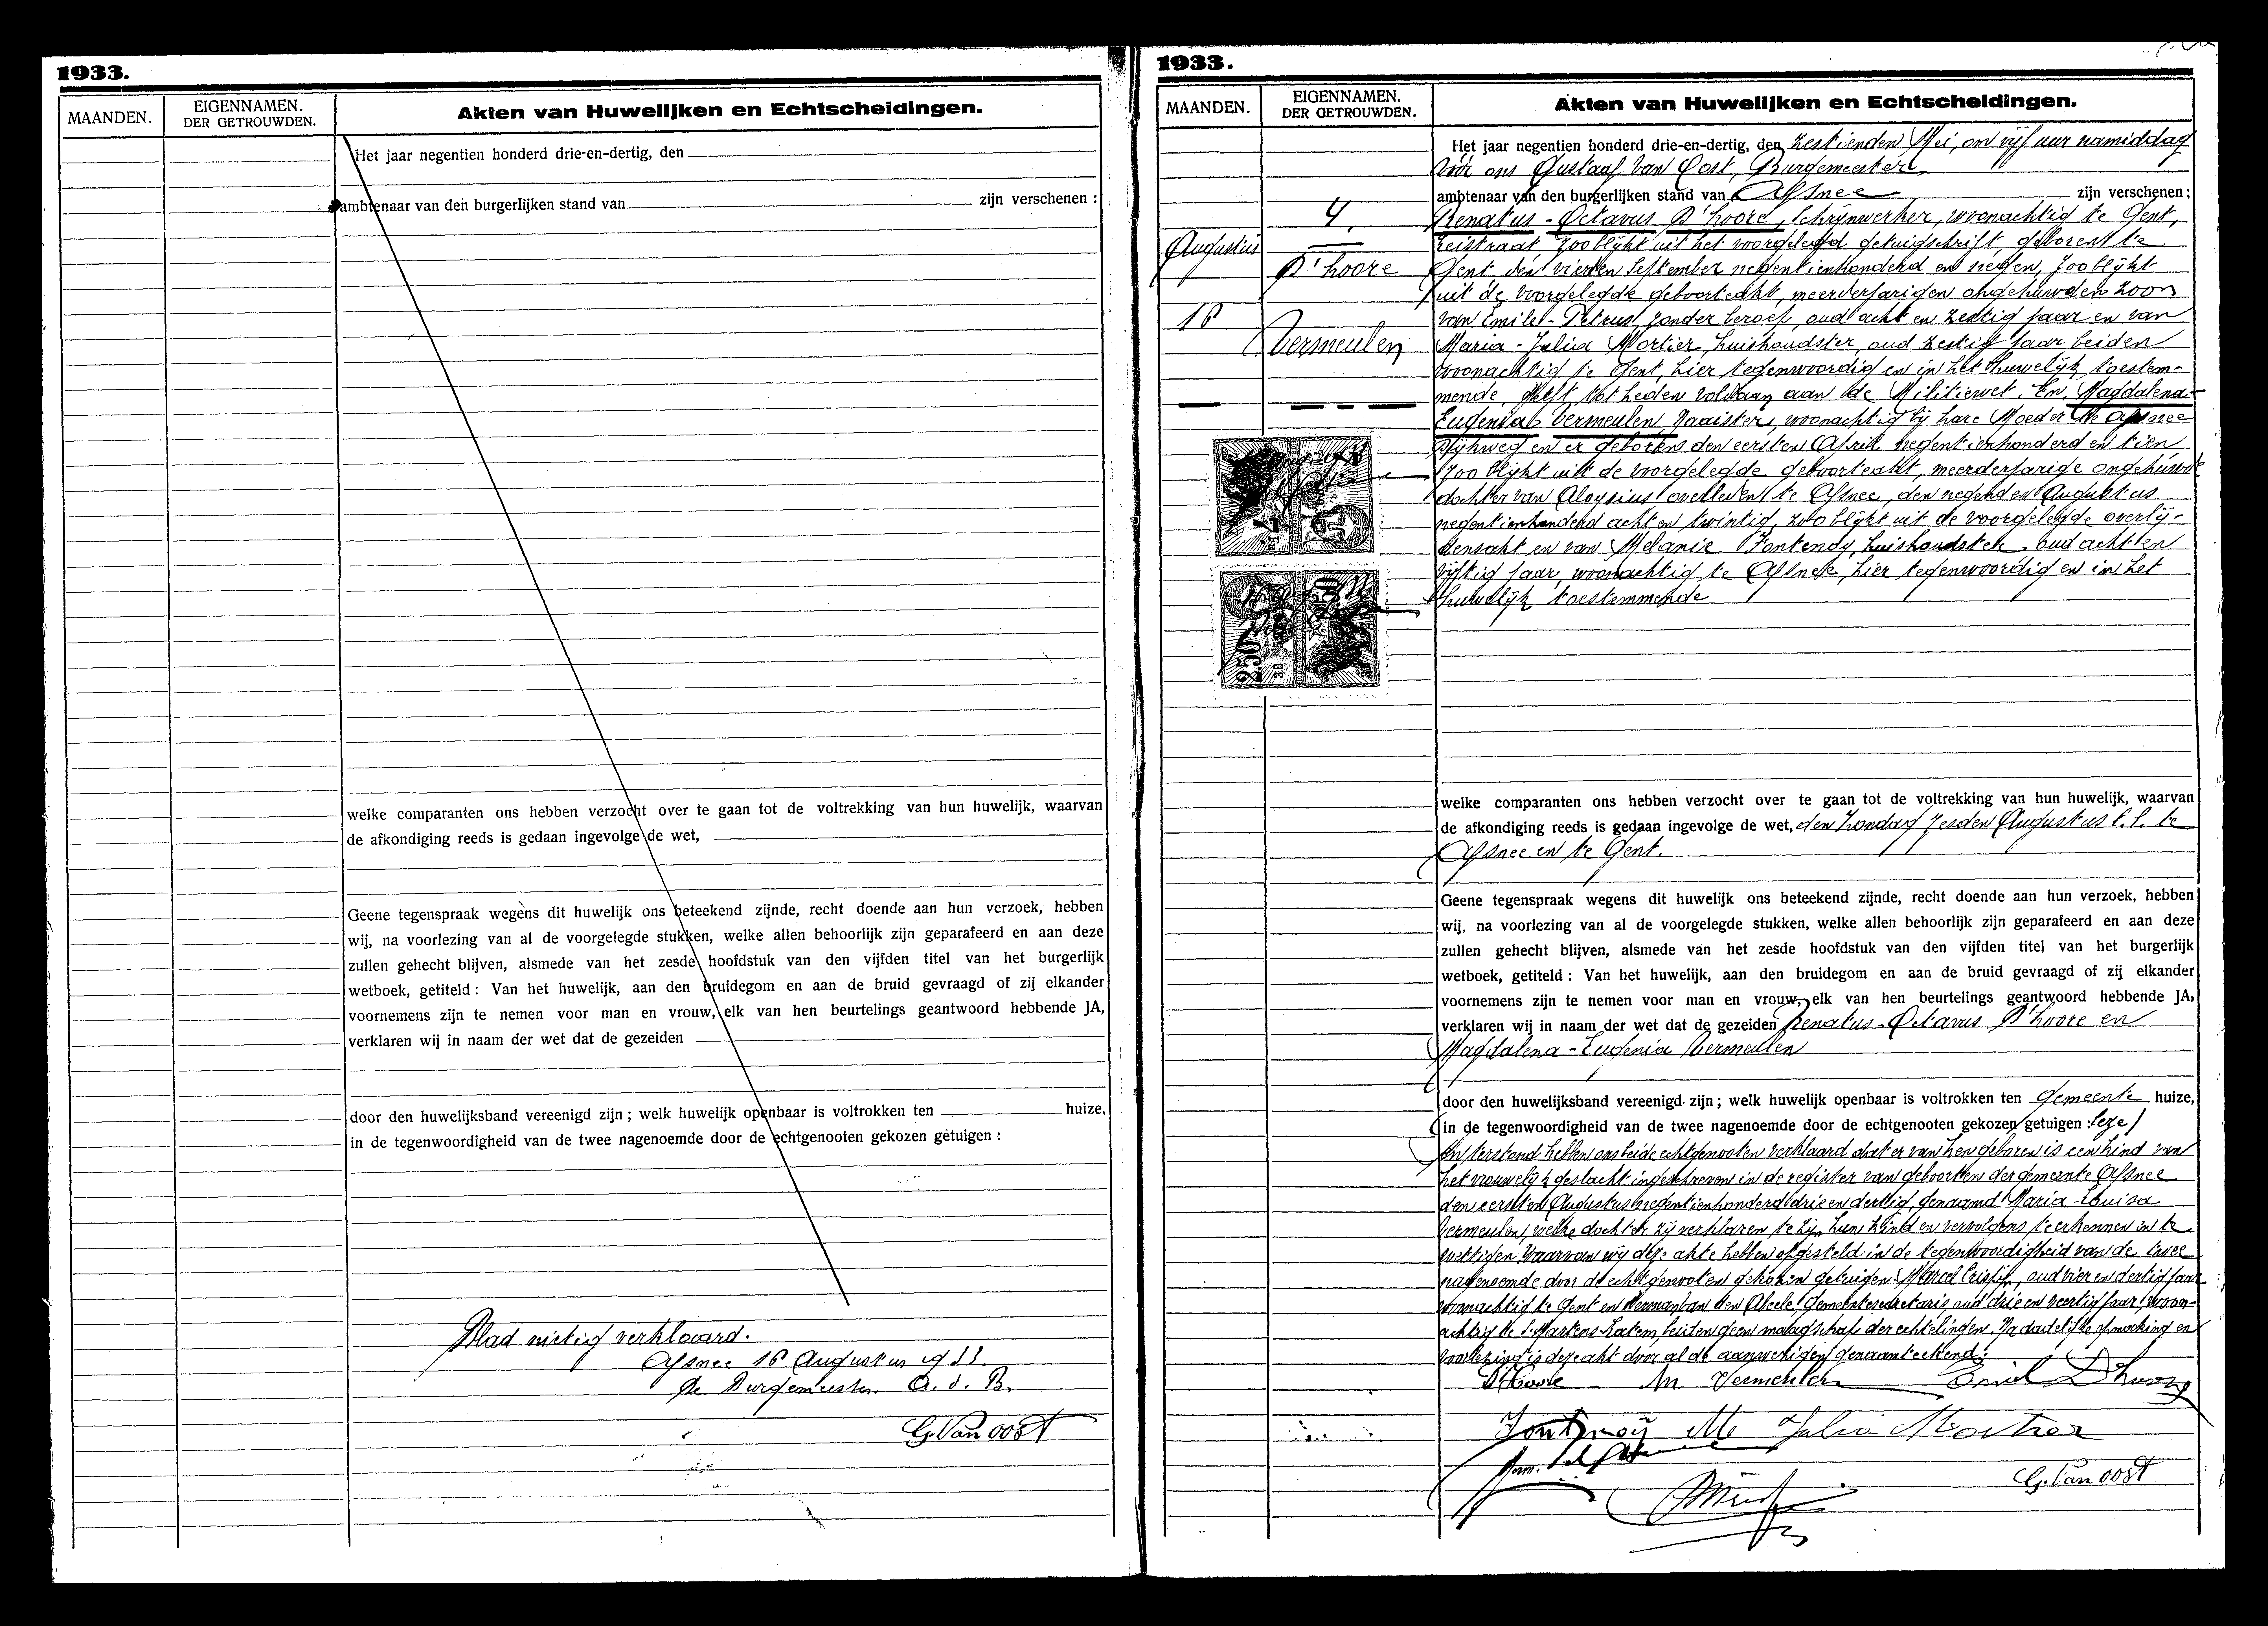 1933.
MAANDEN.
EIGENNAMEN.
DER GETROUWDEN.
Akten van Huwelijken en Echtscheidingen.
Het jaar negentien honderd drie-en-dertig, den
ambtenaar van den burgerlijken stand van zijn verschenen :
welke comparanten ons hebben verzocht over te gaan tot de voltrekking van hun huwelijk, waarvan
de afkondiging reeds is gedaan ingevolge de wet,
Geene tegenspraak wegens dit huwelijk ons beteekend zijnde, recht doende aan hun verzoek, hebben
wij, na voorlezing van al de voorgelegde stukken, welke allen behoorlijk zijn geparafeerd en aan deze
zullen gehecht blijven, alsmede van het zesde hoofdstuk van den vijfden titel van het burgerlijk
wetboek, getiteld : Van het huwelijk, aan den bruidegom en aan de bruid gevraagd of zij elkander
voornemens zijn te nemen voor man en vrouw, elk van hen beurtelings geantwoord hebbende JA,
verklaren wij in naam der wet dat de gezeiden
door den huwelijksband vereenigd zijn ; welk huwelijk openbaar is voltrokken ten huize,
in de tegenwoordigheid van de twee nagenoemde door de echtgenooten gekozen getuigen :
Blad nietig verklaard.
Afsnee 16 Augustus 1933.
De Burgemeester. A. d. B.
G. Van oost
1933.
MAANDEN.
EIGENNAMEN.
DER GETROUWDEN.
Akten van Huwelijken en Echtscheidingen.
4.
Augustus
D'hoore
16
Vermeulen
Het jaar negentien honderd drie-en-dertig, den zestienden Mei, om vijf uur namiddag
Vóór ons Gustaaf Van Oost, Burgemeester,
ambtenaar van den burgerlijken stand van Afsnee zijn verschenen :
Renatus - Octavus D'hoore, Schrijnwerker, woonachtig te Gent,
zoo blijkt uit het voorgelegd getuigschrift, geboren te
Gent den vierden September negentienhonderd en negen, zoo blijkt
uit de voorgelegde geboorteakt, meerderjarigen ongehuwden zoon
van Emile - Petrus zonder beroep, oud acht en zestig jaar en van
Maria - Julia Mortier, huishoudster, oud zestig jaar beiden
woonachtig te Gent hier tegenwoordig en in het huwelijk toestem-
mende, heeft tot heden voldaan aan de Militiewet. En, Magdalena-
Eugenia Vermeulen, Naaister, woonachtig bij hare Moeder te Afsnee
en er geboren den eersten April negentienhonderd en tien
zoo blijkt uit de voorgelegde geboorteakt, meerderjarige ongehuwde
dochter van Aloysius overleden te Afsnee, den negenden Augustus
negentienhonderd acht en twintig, zoo blijkt uit de voorgelegde overlij-
densakt en van Melanie Fontenoy, huishoudster, oud acht en
vijftig jaar, woonachtig te Afsnee, hier tegenwoordig en in het
huwelijk toestemmende
7
FR
2.50
welke comparanten ons hebben verzocht over te gaan tot de voltrekking van hun huwelijk, waarvan
de afkondiging reeds is gedaan ingevolge de wet, den Zondag zesden Augustus l.l. te
Afsnee en te Gent.
Geene tegenspraak wegens dit huwelijk ons beteekend zijnde, recht doende aan hun verzoek, hebben
wij, na voorlezing van al de voorgelegde stukken, welke allen behoorlijk zijn geparafeerd en aan deze
zullen gehecht blijven, alsmede van het zesde hoofdstuk van den vijfden titel van het burgerlijk
wetboek, getiteld : Van het huwelijk, aan den bruidegom en aan de bruid gevraagd of zij elkander
voornemens zijn te nemen voor man en vrouw, elk van hen beurtelings geantwoord hebbende JA,
verklaren wij in naam der wet dat de gezeiden Renatus - Octavus D'hoore en
Magdalena - Eugenia Vermeulen
door den huwelijksband vereenigd zijn ; welk huwelijk openbaar is voltrokken ten gemeente huize,
in de tegenwoordigheid van de twee nagenoemde door de echtgenooten gekozen getuigen : leze
En terstond hebben ons beide echtgenooten verklaard dat er van hen geboren is een kind van
het vrouwelijk geslacht ingeschreven in de register van geboorten der gemeente Afsnee
den eersten Augustus negentienhonderd drie en dertig, genaamd Maria - Louisa
Vermeulen, welke dochter zij verklaren te zijn hun kind en vervolgens te erkennen en te
wettigen. Waarvan wij deze akte hebben opgesteld in de tegenwoordigheid van de twee
nagenoemde door de echtgenooten gekozen getuigen: Marcel Crispijn, oud vier en dertig jaar
woonachtig te Gent en Herman Van den Abeele, Gemeentesecretaris, oud drie en veertig jaar, woon-
achtig te S. Martens-Latem, beiden geen maagschap der echtelingen. Na dadelijke opmaking en
voorlezing is deze akt door al de aanwezigen genaamteekend.
D'Hoore M. Vermeulen Emiel D'hoore
Fontenoy Me Julia Mortier
G. Van oost